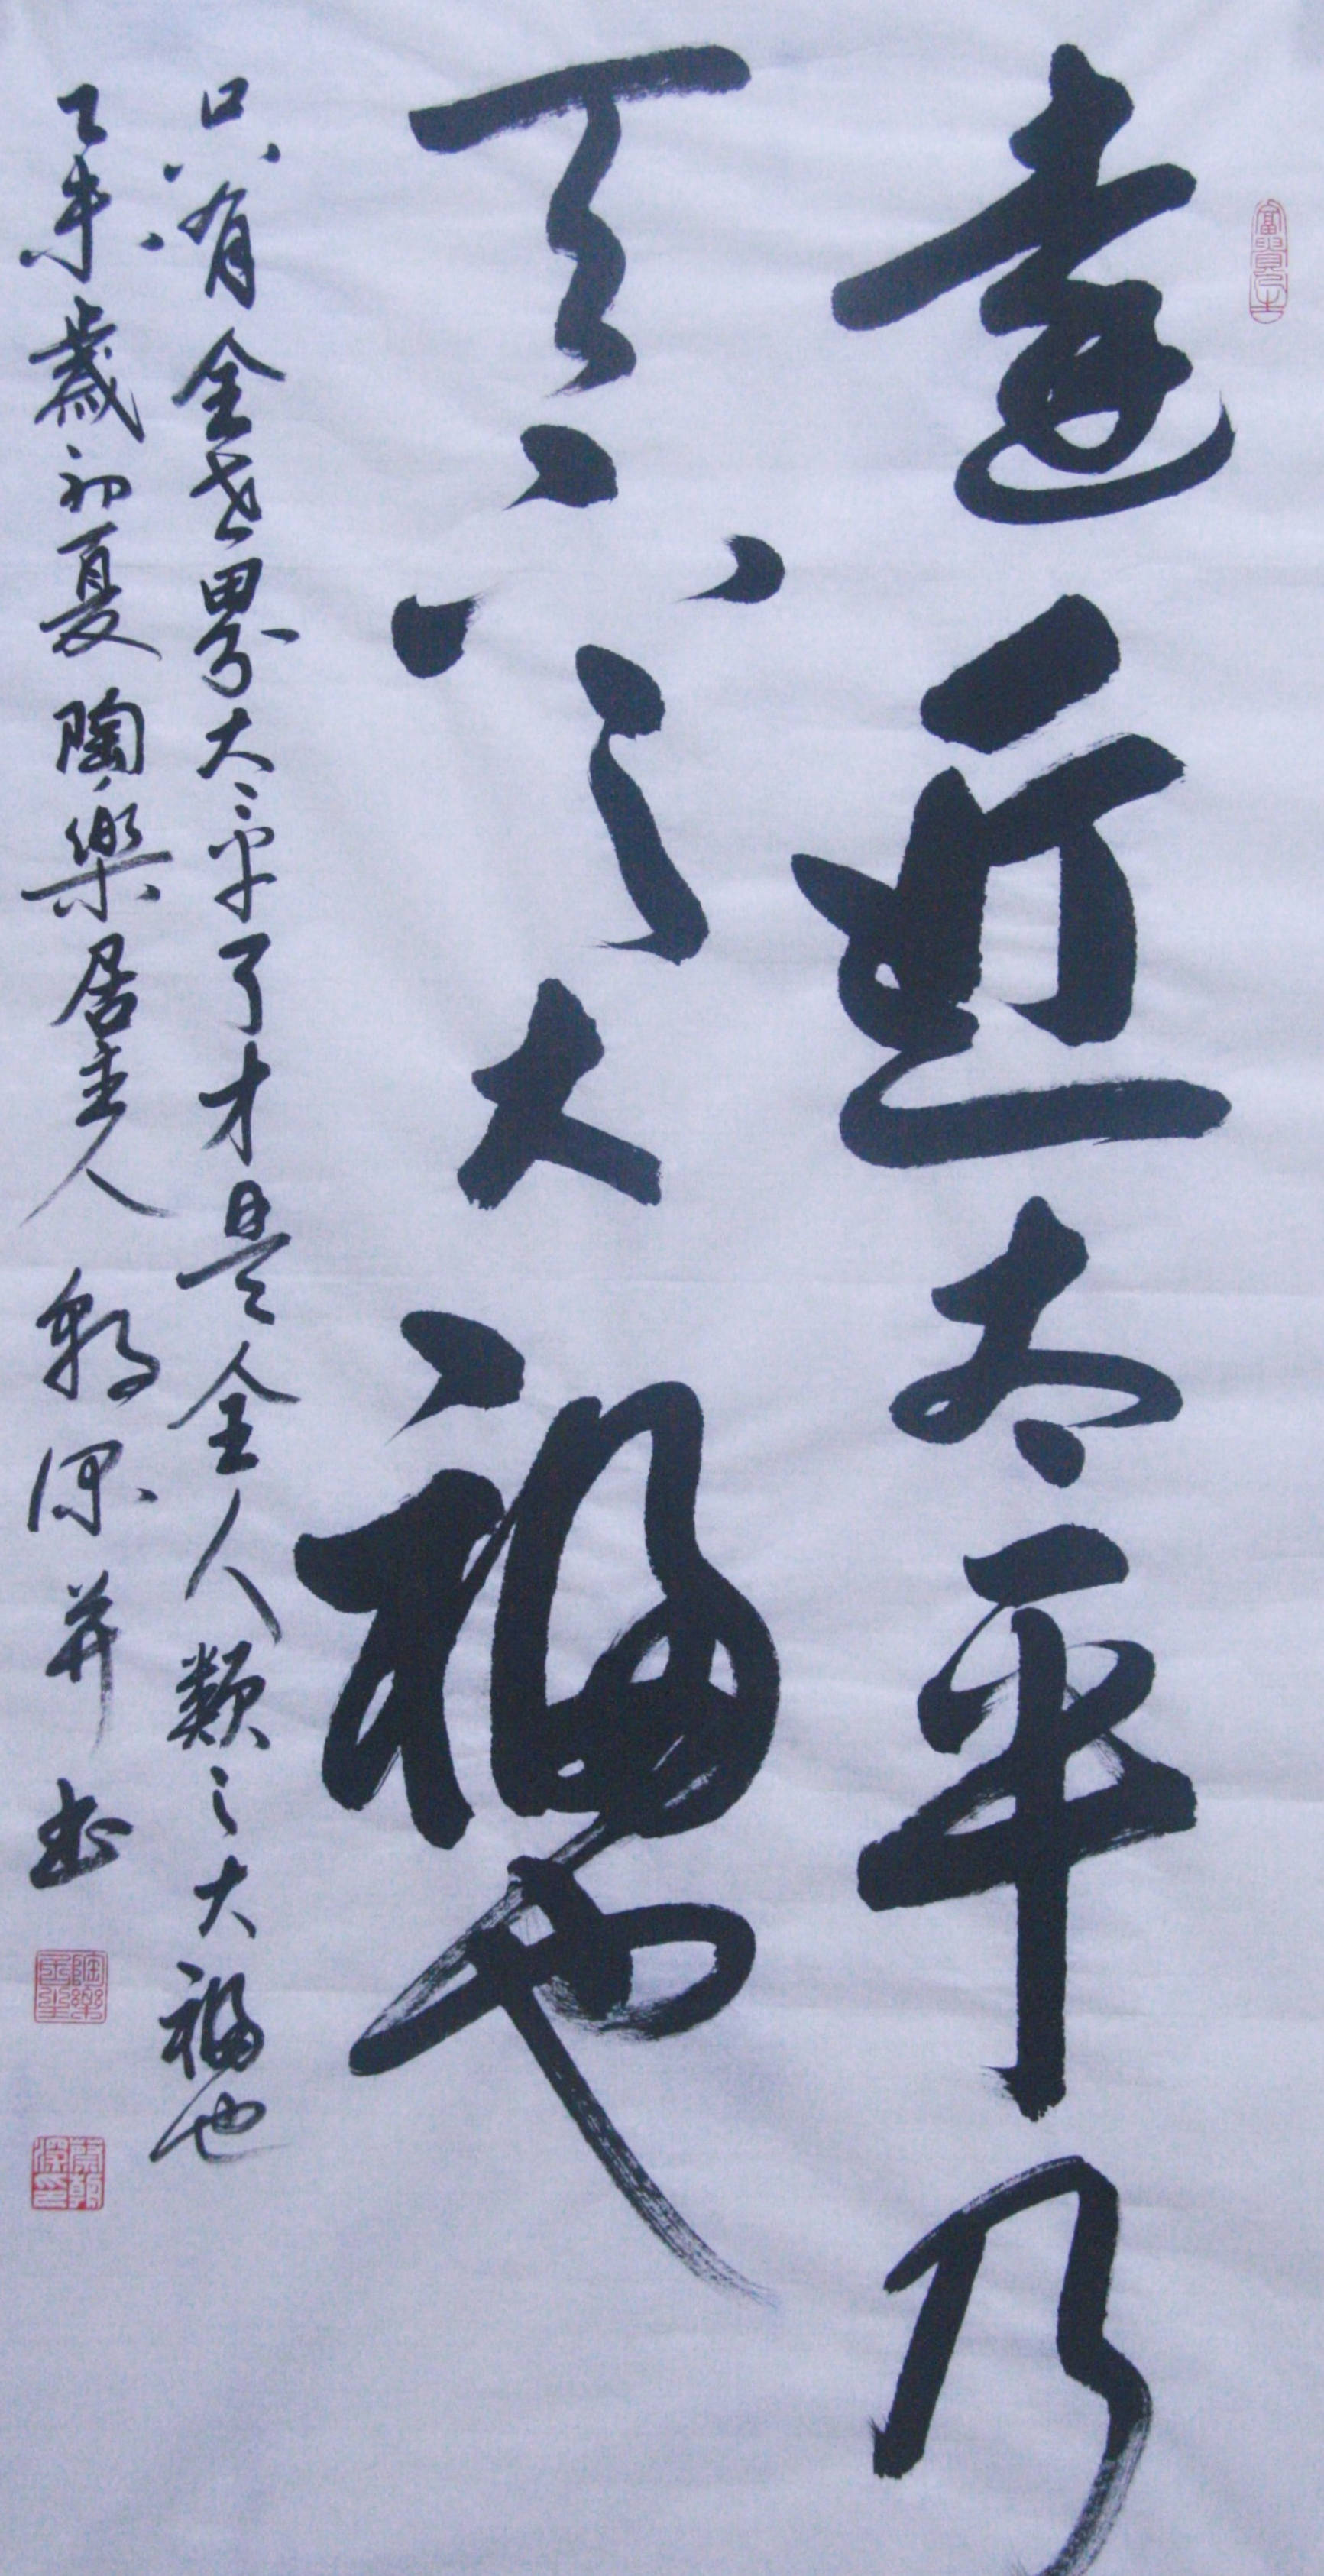 遠近太平乃
天下之大福也
只有全世界太平了才是全人類之大福也
乙未歲初夏陶樂居主人朝深并书